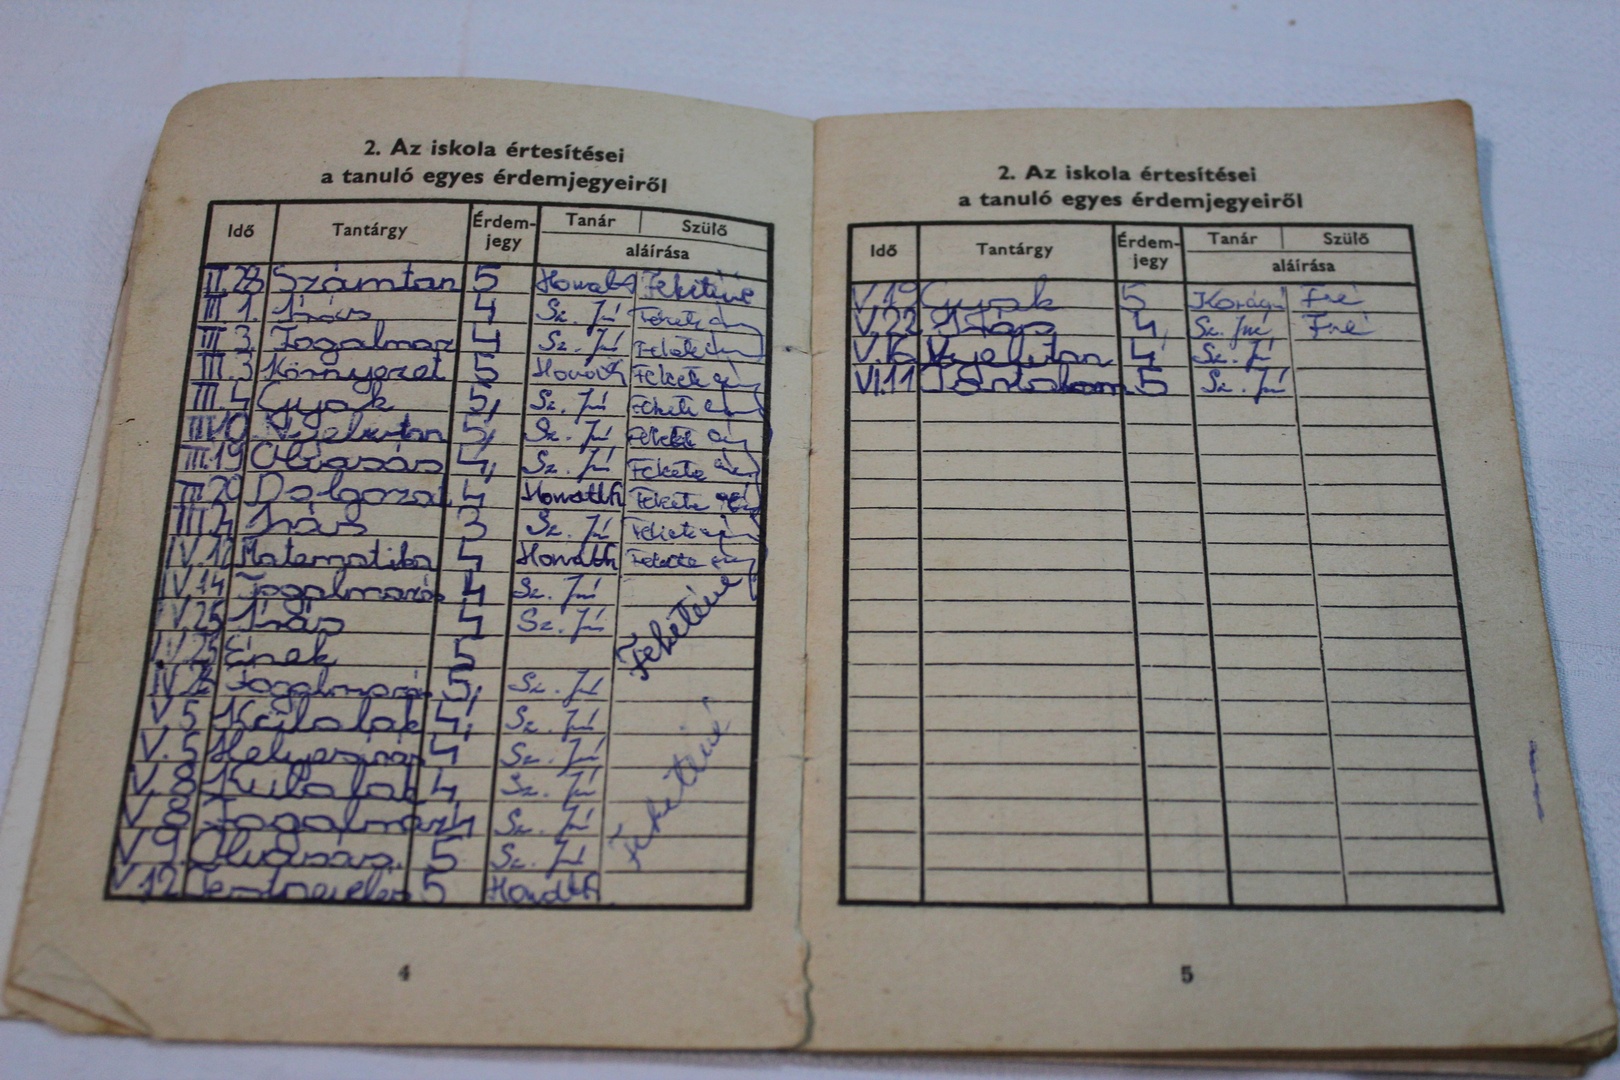 2. Az iskola értesítései
a tanuló egyes érdemjegyeiről
Idő Tantárgy Érdem-jegy Tanár Szülő
aláírása
II.28 Számtan 5 Horváth Feketéné
III.1. Írás 4 Sz. Jné Fekete
III.3. Fogalmaz 4 Sz. Jné Fekete
III.3 Környezet 5 Horváth Fekete
III.4 Gyak 5, Sz. Jné Fekete
III.10. Nyelvtan 5, Sz. Jné Fekete
III.19 Olvasás 4, Sz. Jné Fekete
III.20 Dolgozat 4 Horváth Fekete
Írás 3 Sz. Jné Fekete
Matematika 4 Horváth Fekete
IV.14 Fogalmazás 4 Sz. Jné
IV.25 Írás 4 Sz. Jné Feketéné
IV.25 Ének 5
Fogalmazás 5, Sz. Jné
V.5 4, Sz. Jné
V.5 Helyesírás 4 Sz. Jné Feketéné
V.8 4 Sz. Jné
V.8 Fogalmaz 4 Sz. Jné
V.9 Olvasás. 5 Sz. Jné
V.12 5 Horváth
4
2. Az iskola értesítései
a tanuló egyes érdemjegyeiről
Idő Tantárgy Érdem-jegy Tanár Szülő
aláírása
V.19 Gyak 5 Fné
V.22 4, Sz. Jné Fné
Nyelvtan 4, Sz. Jné
VI.11 5 Sz. Jné
5